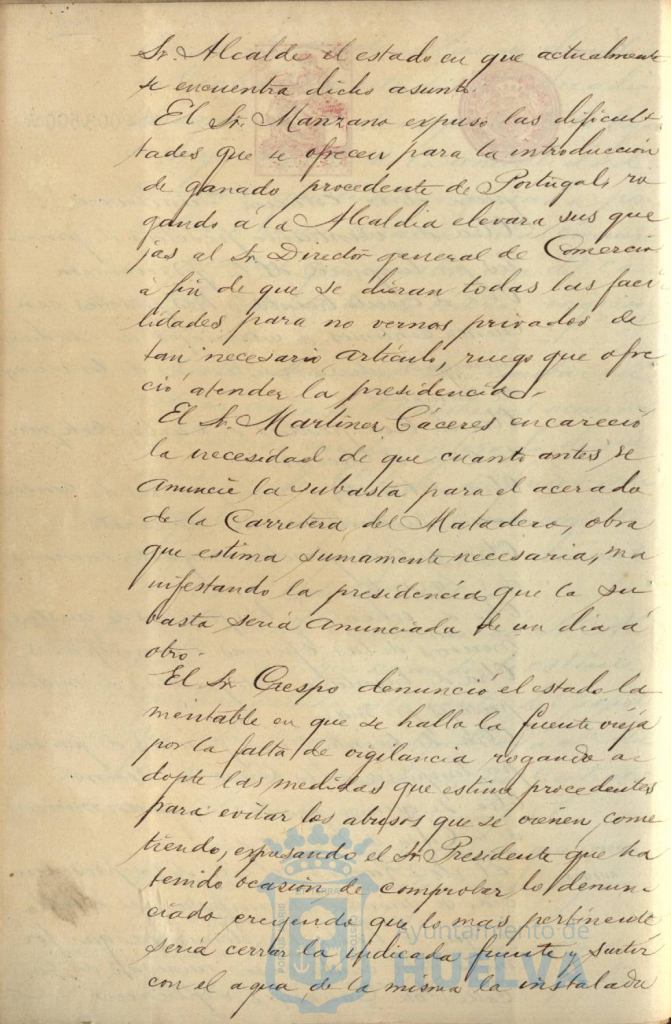 Sr. Alcalde el estado en que actualmente
se encuentra dicho asunto.
El Sr. Manzano expuso las dificul-
tades que se ofrecen para la introducción
de ganado procedente de Portugal, ro
gando á la Alcaldia elevara sus que
jas al Sr. Director general de Comercio
á fin de que se dieran todas las faci
lidades para no vernos privados de
tan necesario artículo, ruego que ofre
ció atender la presidencia.
El Sr. Martinez Cáceres encareció
la necesidad de que cuanto antes se
anuncie la subasta para el acerado
de la Carretera del Matadero, obra
que estima sumamente necesaria, ma
nifestando la presidencia que la su
basta seria anunciada de un dia á
otro.
El Sr. Crespo denunció el estado la
mentable en que se halla la fuente vieja
por la falta de vigilancia rogando a-
dopte las medidas que estime procedentes
para evitar los abusos que se vienen come
tiendo, expresando el Sr. Presidente que ha
tenido ocasión de comprobar lo denun-
ciado creyendo que lo mas pertinente
seria cerrar la indicada fuente y surtir
con el agua de la misma la instalada
Ayuntamiento de
HUELVA